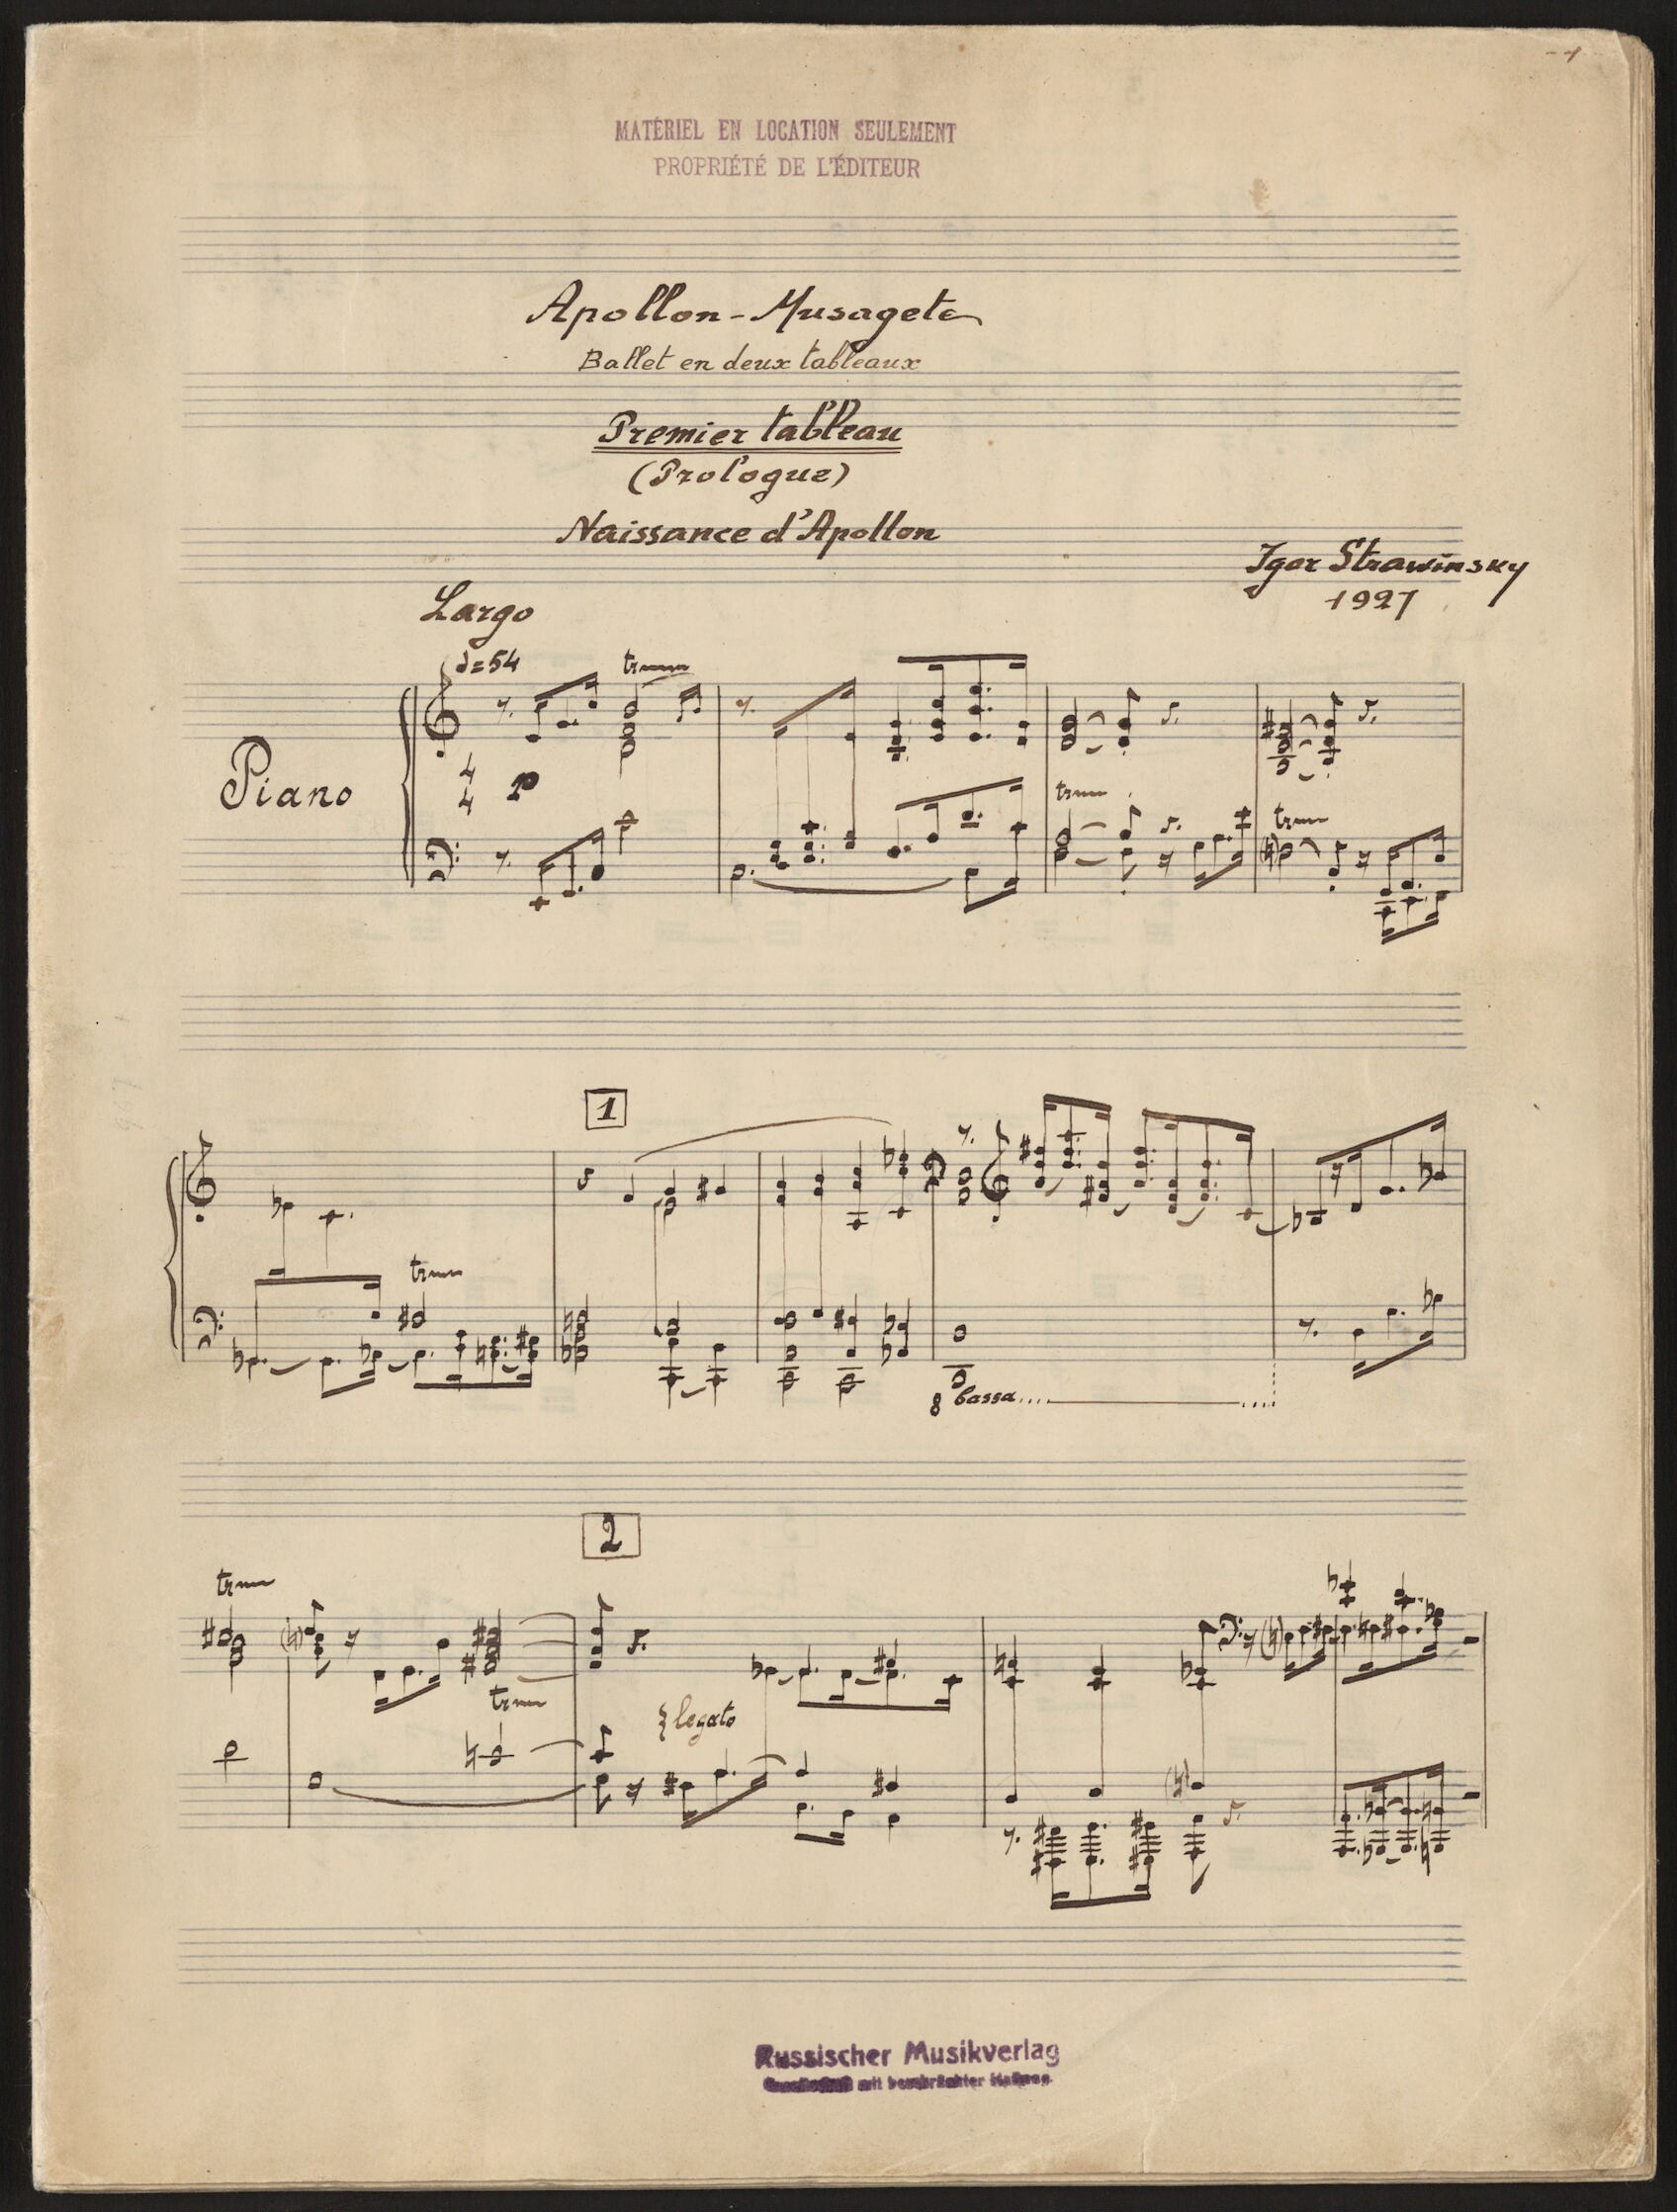 -1
MATÉRIEL EN LOCATION SEULEMENT
PROPRIÉTÉ DE L'ÉDITEUR
Apollon-Musagete
Ballet en deux tableaux
Premier tableau
(Prologue)
Naissance d'Apollon
Igor Strawinsky
1927
Largo
♩=54
tr
Piano
4
4
p
tr
tr
1
tr
8 bassa....
2
tr
tr
legato
Russischer Musikverlag
mit beschränkter